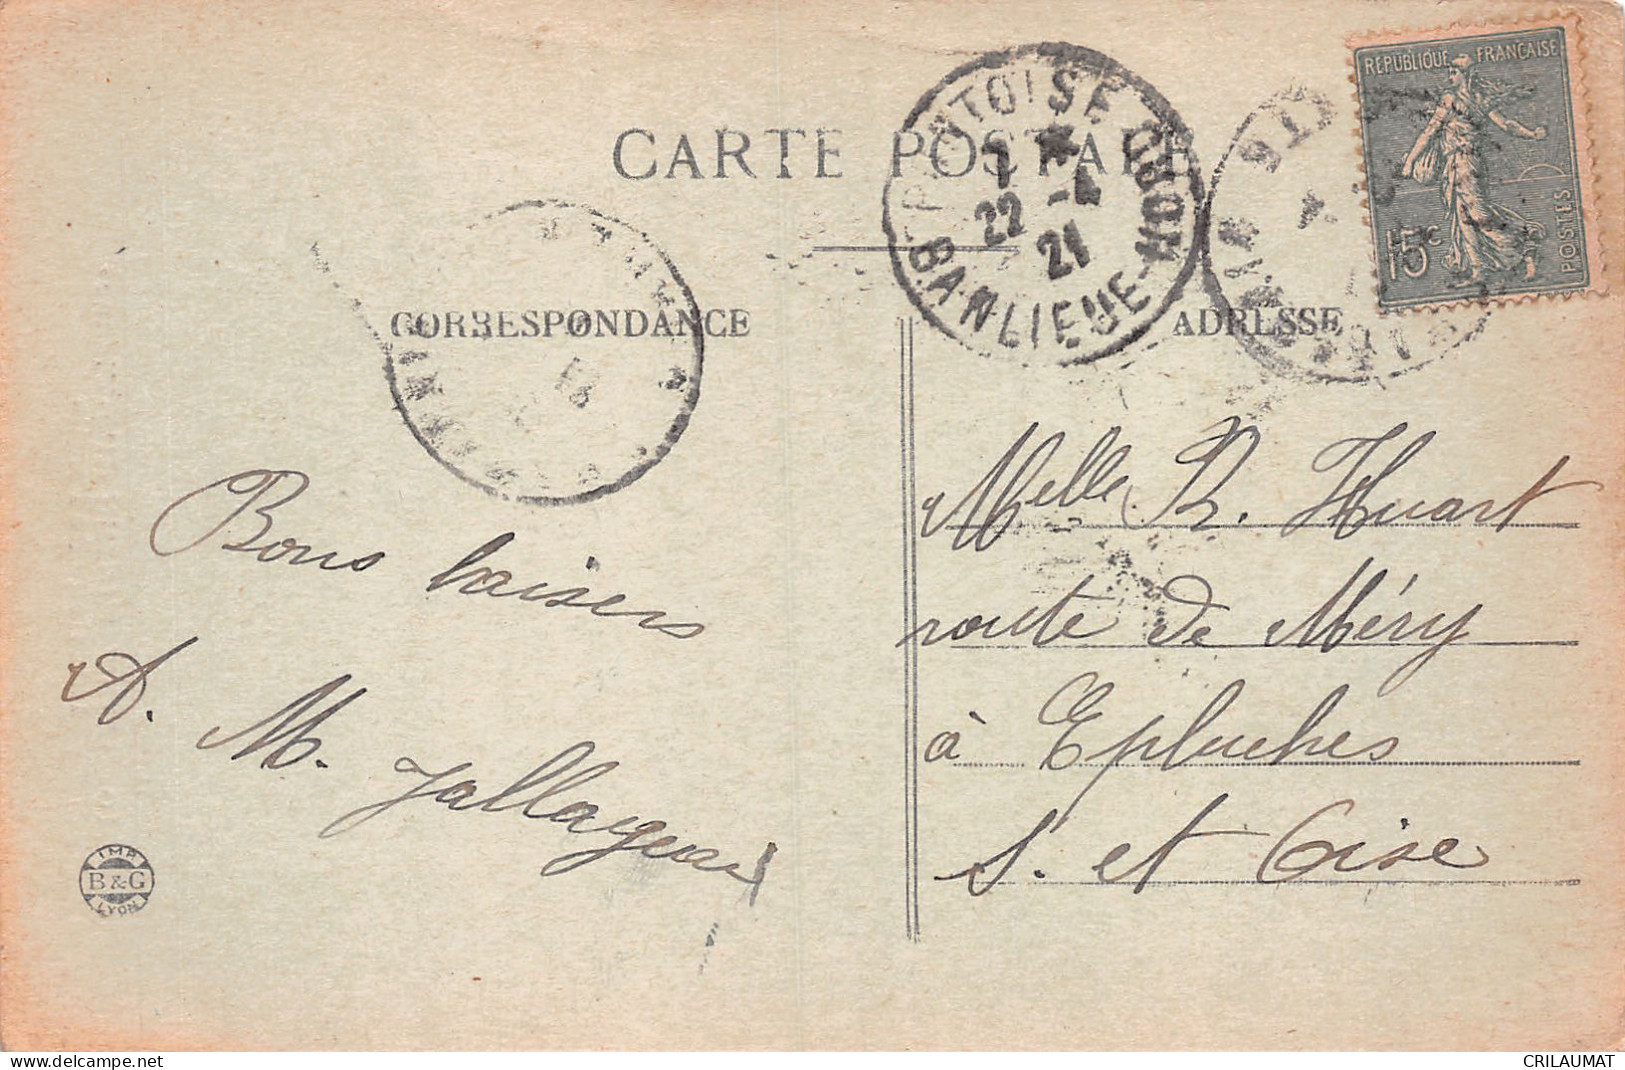 CARTE POSTALE
CORRESPONDANCE
ADRESSE
REPUBLIQUE FRANÇAISE
15c
POSTES
PONTOISE
7 *
22 -4
21
BANLIEUE-NORD
Bons baisers
A. M. Jallageas
Melle R. Huart
route de Méry
à Epluches
S. et Oise
IMP.
B & G
LYON
https://www.delcampe.net
CRILAUMAT